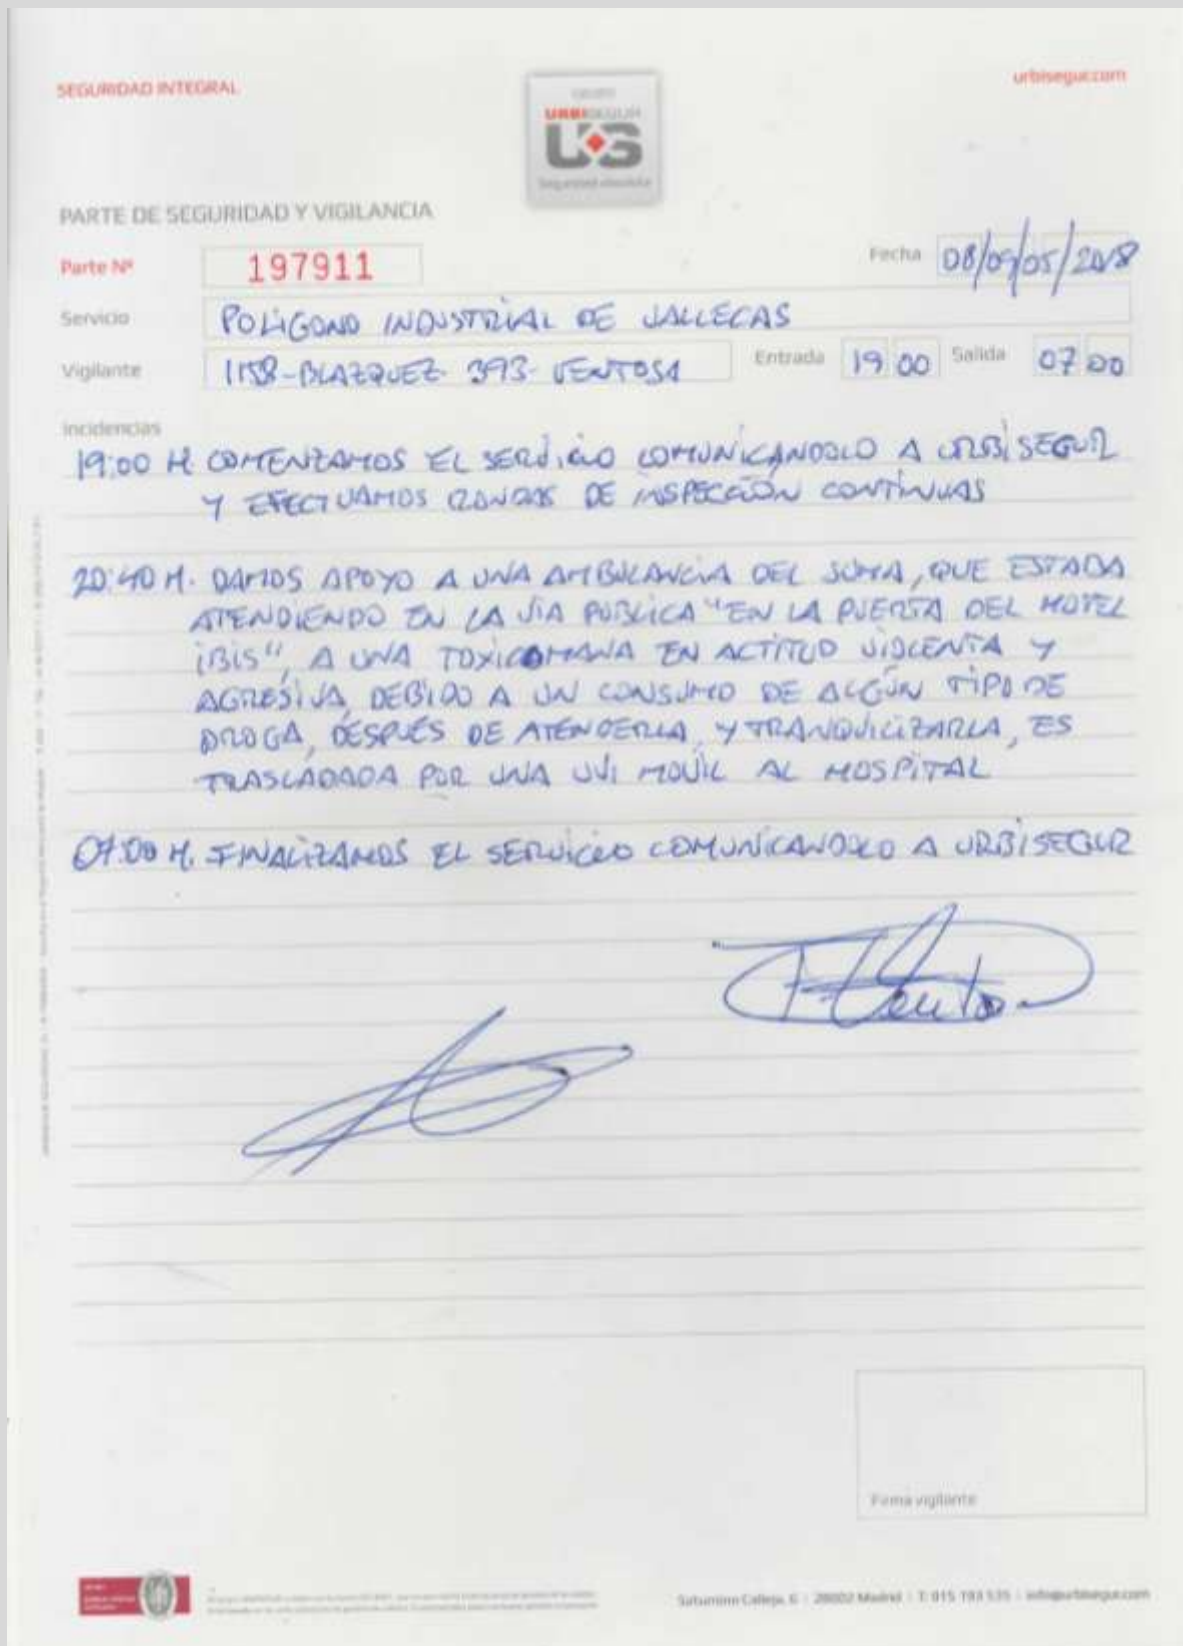 SEGURIDAD INTEGRAL
urbisegur.com
GRUPO
URBISEGUR
UGS
Seguridad absoluta
PARTE DE SEGURIDAD Y VIGILANCIA
Parte Nº 197911
Fecha 08/09/05/2018
Servicio POLÍGONO INDUSTRIAL DE VALLECAS
Vigilante 1158-BLAZQUEZ 393-VENTOSA Entrada 19 00 Salida 07 00
Incidencias
19:00 H COMENZAMOS EL SERVICIO COMUNICANDOLO A URBISEGUR
Y EFECTUAMOS RONDAS DE INSPECCIÓN CONTINUAS
20:40 H. DAMOS APOYO A UNA AMBULANCIA DEL SUMA, QUE ESTABA
ATENDIENDO EN LA VIA PUBLICA "EN LA PUERTA DEL HOTEL
IBIS", A UNA TOXICOMANA EN ACTITUD VIOLENTA Y
AGRESIVA, DEBIDO A UN CONSUMO DE ALGÚN TIPO DE
DROGA, DESPUÉS DE ATENDERLA, Y TRANQUILIZARLA, ES
TRASLADADA POR UNA UVI MOVIL AL HOSPITAL
07:00 H. FINALIZAMOS EL SERVICIO COMUNICANDOLO A URBISEGUR
Firma vigilante
Saturnino Calleja, 6 | 28002 Madrid | T: 915 193 535 | info@urbisegur.com